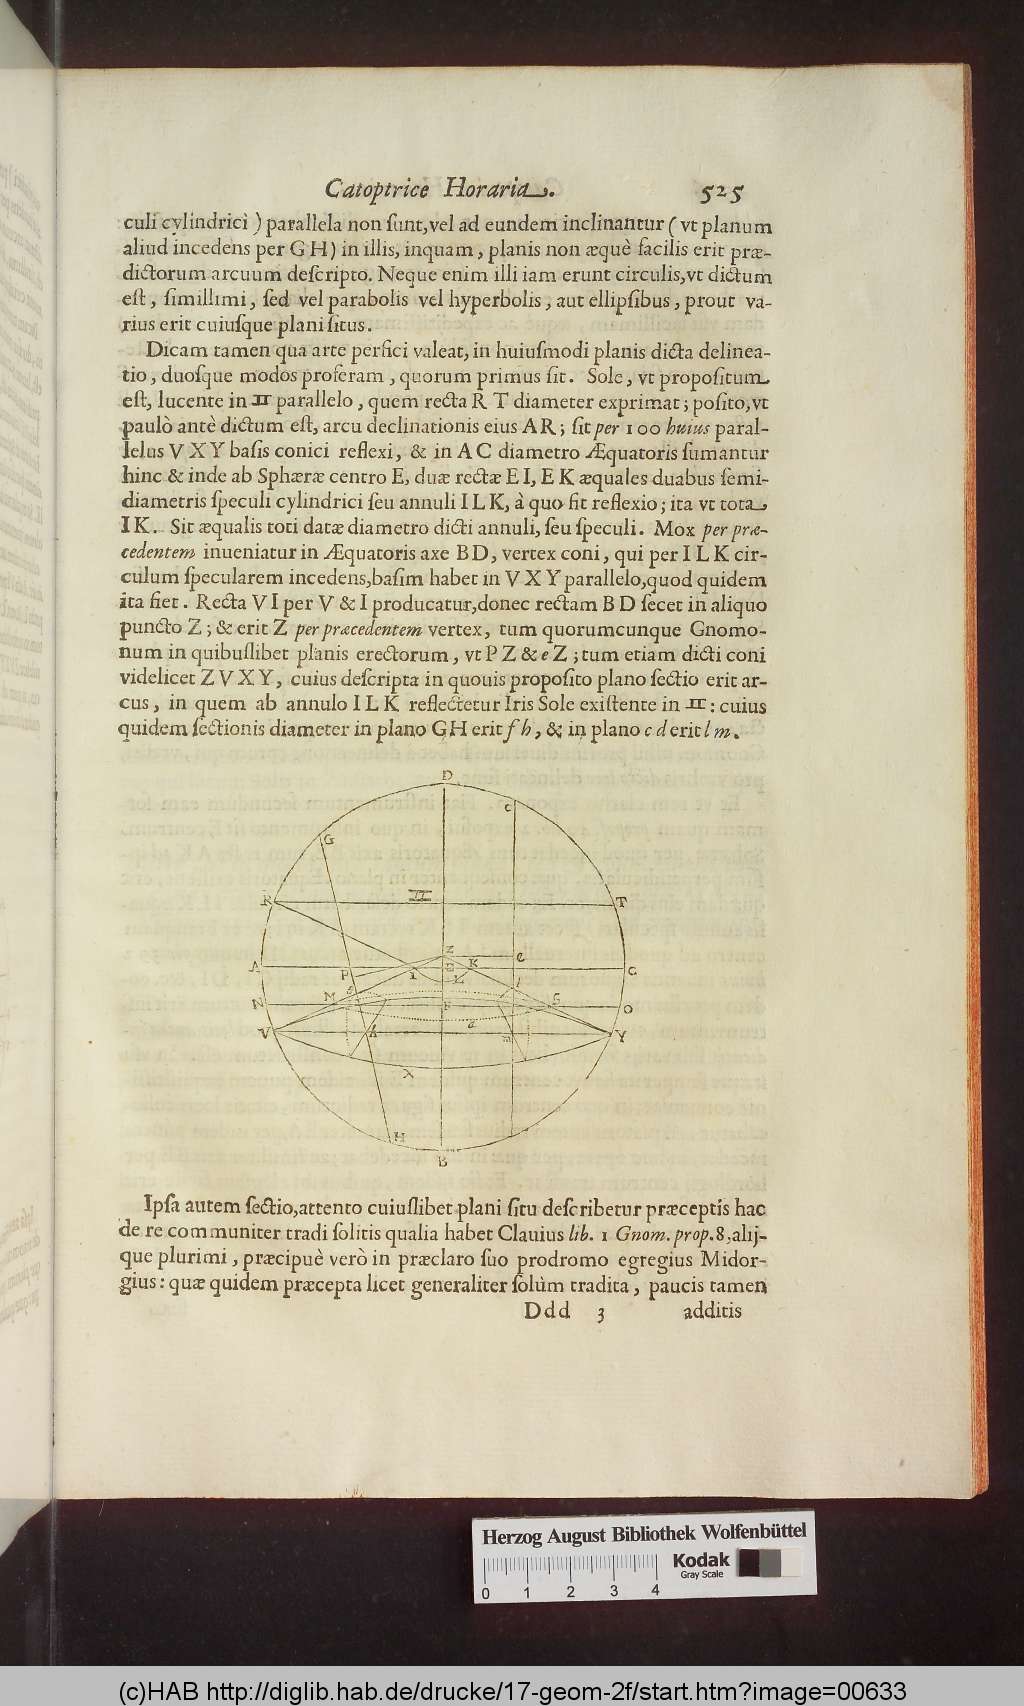 Catoptrice Horaria. 525
culi cylindrici ) parallela non ſunt, vel ad eundem inclinantur ( vt planum
aliud incedens per G H ) in illis, inquam, planis non æquè facilis erit præ-
dictorum arcuum deſcripto. Neque enim illi iam erunt circulis, vt dictum
eſt, ſimillimi, ſed vel parabolis vel hyperbolis, aut ellipſibus, prout va-
rius erit cuiuſque plani ſitus.
Dicam tamen qua arte perfici valeat, in huiuſmodi planis dicta delinea-
tio, duoſque modos proferam, quorum primus ſit. Sole, vt propoſitum
eſt, lucente in ♊ parallelo, quem recta R T diameter exprimat; poſito, vt
paulò antè dictum eſt, arcu declinationis eius AR; ſit per 100 huius paral-
lelus V X Y baſis conici reflexi, & in A C diametro Æquatoris ſumantur
hinc & inde ab Sphæræ centro E, duæ rectæ E I, E K æquales duabus ſemi-
diametris ſpeculi cylindrici ſeu annuli I L K, à quo fit reflexio; ita vt tota
I K. Sit æqualis toti datæ diametro dicti annuli, ſeu ſpeculi. Mox per præ-
cedentem inueniatur in Æquatoris axe B D, vertex coni, qui per I L K cir-
culum ſpecularem incedens, baſim habet in V X Y parallelo, quod quidem
ita fiet. Recta V I per V & I producatur, donec rectam B D ſecet in aliquo
puncto Z; & erit Z per præcedentem vertex, tum quorumcunque Gnomo-
num in quibuſlibet planis erectorum, vt P Z & e Z; tum etiam dicti coni
videlicet Z V X Y, cuius deſcripta in quouis propoſito plano ſectio erit ar-
cus, in quem ab annulo I L K reflectetur Iris Sole exiſtente in ♊: cuius
quidem ſectionis diameter in plano G H erit f h, & in plano c d erit l m.
D
c
G
R
♊
T
Z
e
A
P
I
E
K
C
L
l
M
N
F
S
O
V
h
a
m
Y
X
H
B
Ipſa autem ſectio, attento cuiuſlibet plani ſitu deſcribetur præceptis hac
de re communiter tradi ſolitis qualia habet Clauius lib. 1 Gnom. prop. 8, alij-
que plurimi, præcipuè verò in præclaro ſuo prodromo egregius Midor-
gius: quæ quidem præcepta licet generaliter ſolùm tradita, paucis tamen
Ddd 3 additis
Herzog August Bibliothek Wolfenbüttel
Kodak
Gray Scale
0 1 2 3 4
(c)HAB http://diglib.hab.de/drucke/17-geom-2f/start.htm?image=00633